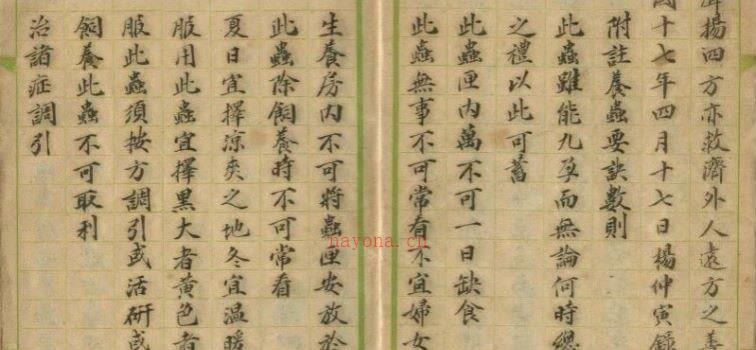 揚四方亦救濟外人遠方之善
十七年四月十七日楊仲寅錄
附註養蟲要訣數則
此蟲雖能九孕而無論何時總
之禮以此可蓄
此蟲匣内萬不可一日缺食
此蟲無事不可常看不宜婦女
生養房内不可將蟲匣安放於
此蟲除飼養時不可常看
夏日宜擇凉爽之地冬宜温暖
服用此蟲宜擇黑大者黄色者
服此蟲須按方調引或活研或
飼養此蟲不可取利
治諸症調引
nayona.cn